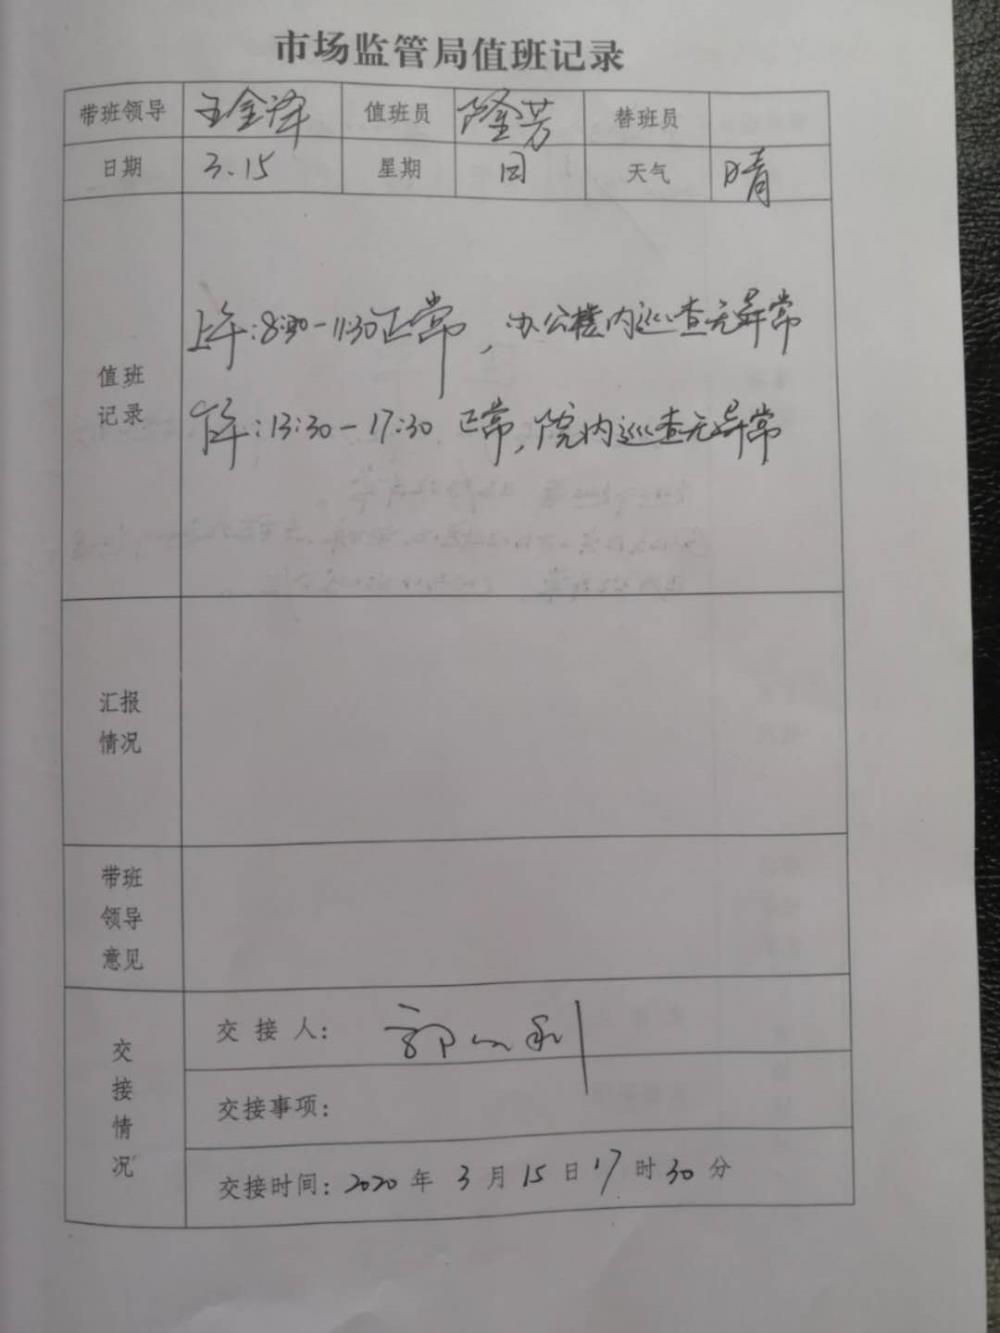 市场监管局值班记录
带班领导 王金泽 值班员 隆芳 替班员
日期 3.15 星期 日 天气 晴
值班
记录
上午:8:30-11:30正常,办公楼内巡查无异常
下午:13:30-17:30 正常,院内巡查无异常
汇报
情况
带班
领导
意见
交
接
情
况
交接人:
交接事项:
交接时间:2020年3月15日17时30分